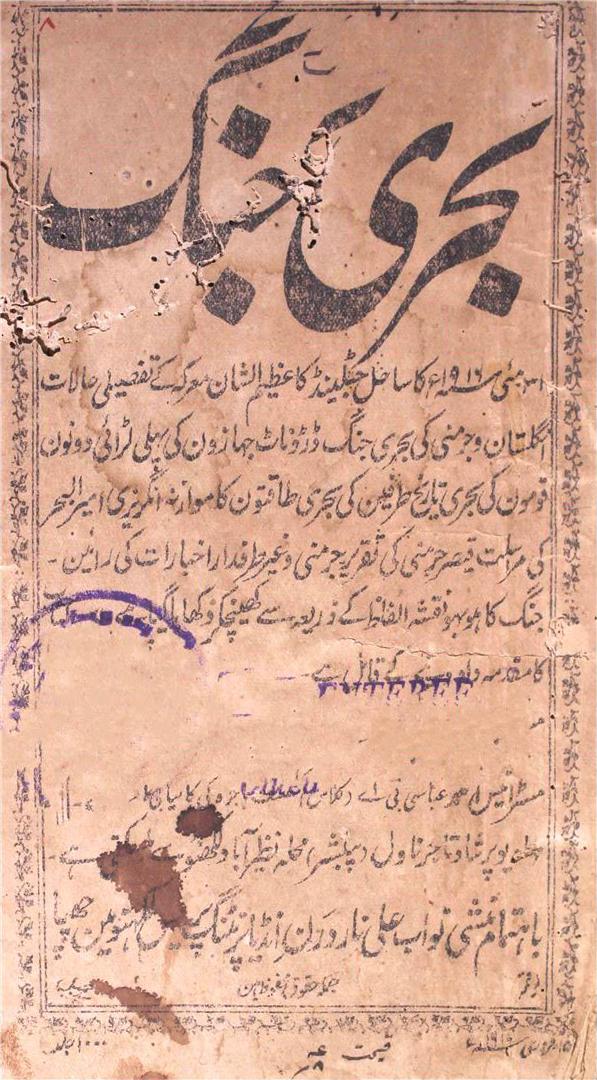 بحری جنگ
۳۱ مئی سنہ ۱۹۱۶ء کا ساحل جٹلینڈ کا عظیم الشان معرکہ کے تفصیلی حالات
انگلستان و جرمنی کی بحری جنگ ڈرڈناٹ جہازون کی پہلی لڑائی دونون
قومون کی بحری تاریخ طرفین کی بحری طاقتون کا موازنہ انگریزی امیر البحر
کی مراسلت قیصر جرمنی کی تقریر جرمنی و غیر طرفدار اخبارات کی رائین۔
جنگ کا ہو بہو نقشہ الفاظ کے ذریعہ سے کھینچکر دکھایا گیا ہے
کا مقدمہ کے قابل ہے
مسٹر انیس احمد عباسی بی اے
تاجر ناول (پبلشر) محلہ نظیرآباد لکھنؤ سے
باہتمام منشی نواب علی نار درن انڈیا پرنٹنگ پریس لکھنؤ مین چھپا
جملہ حقوق محفوظ ہین
قیمت